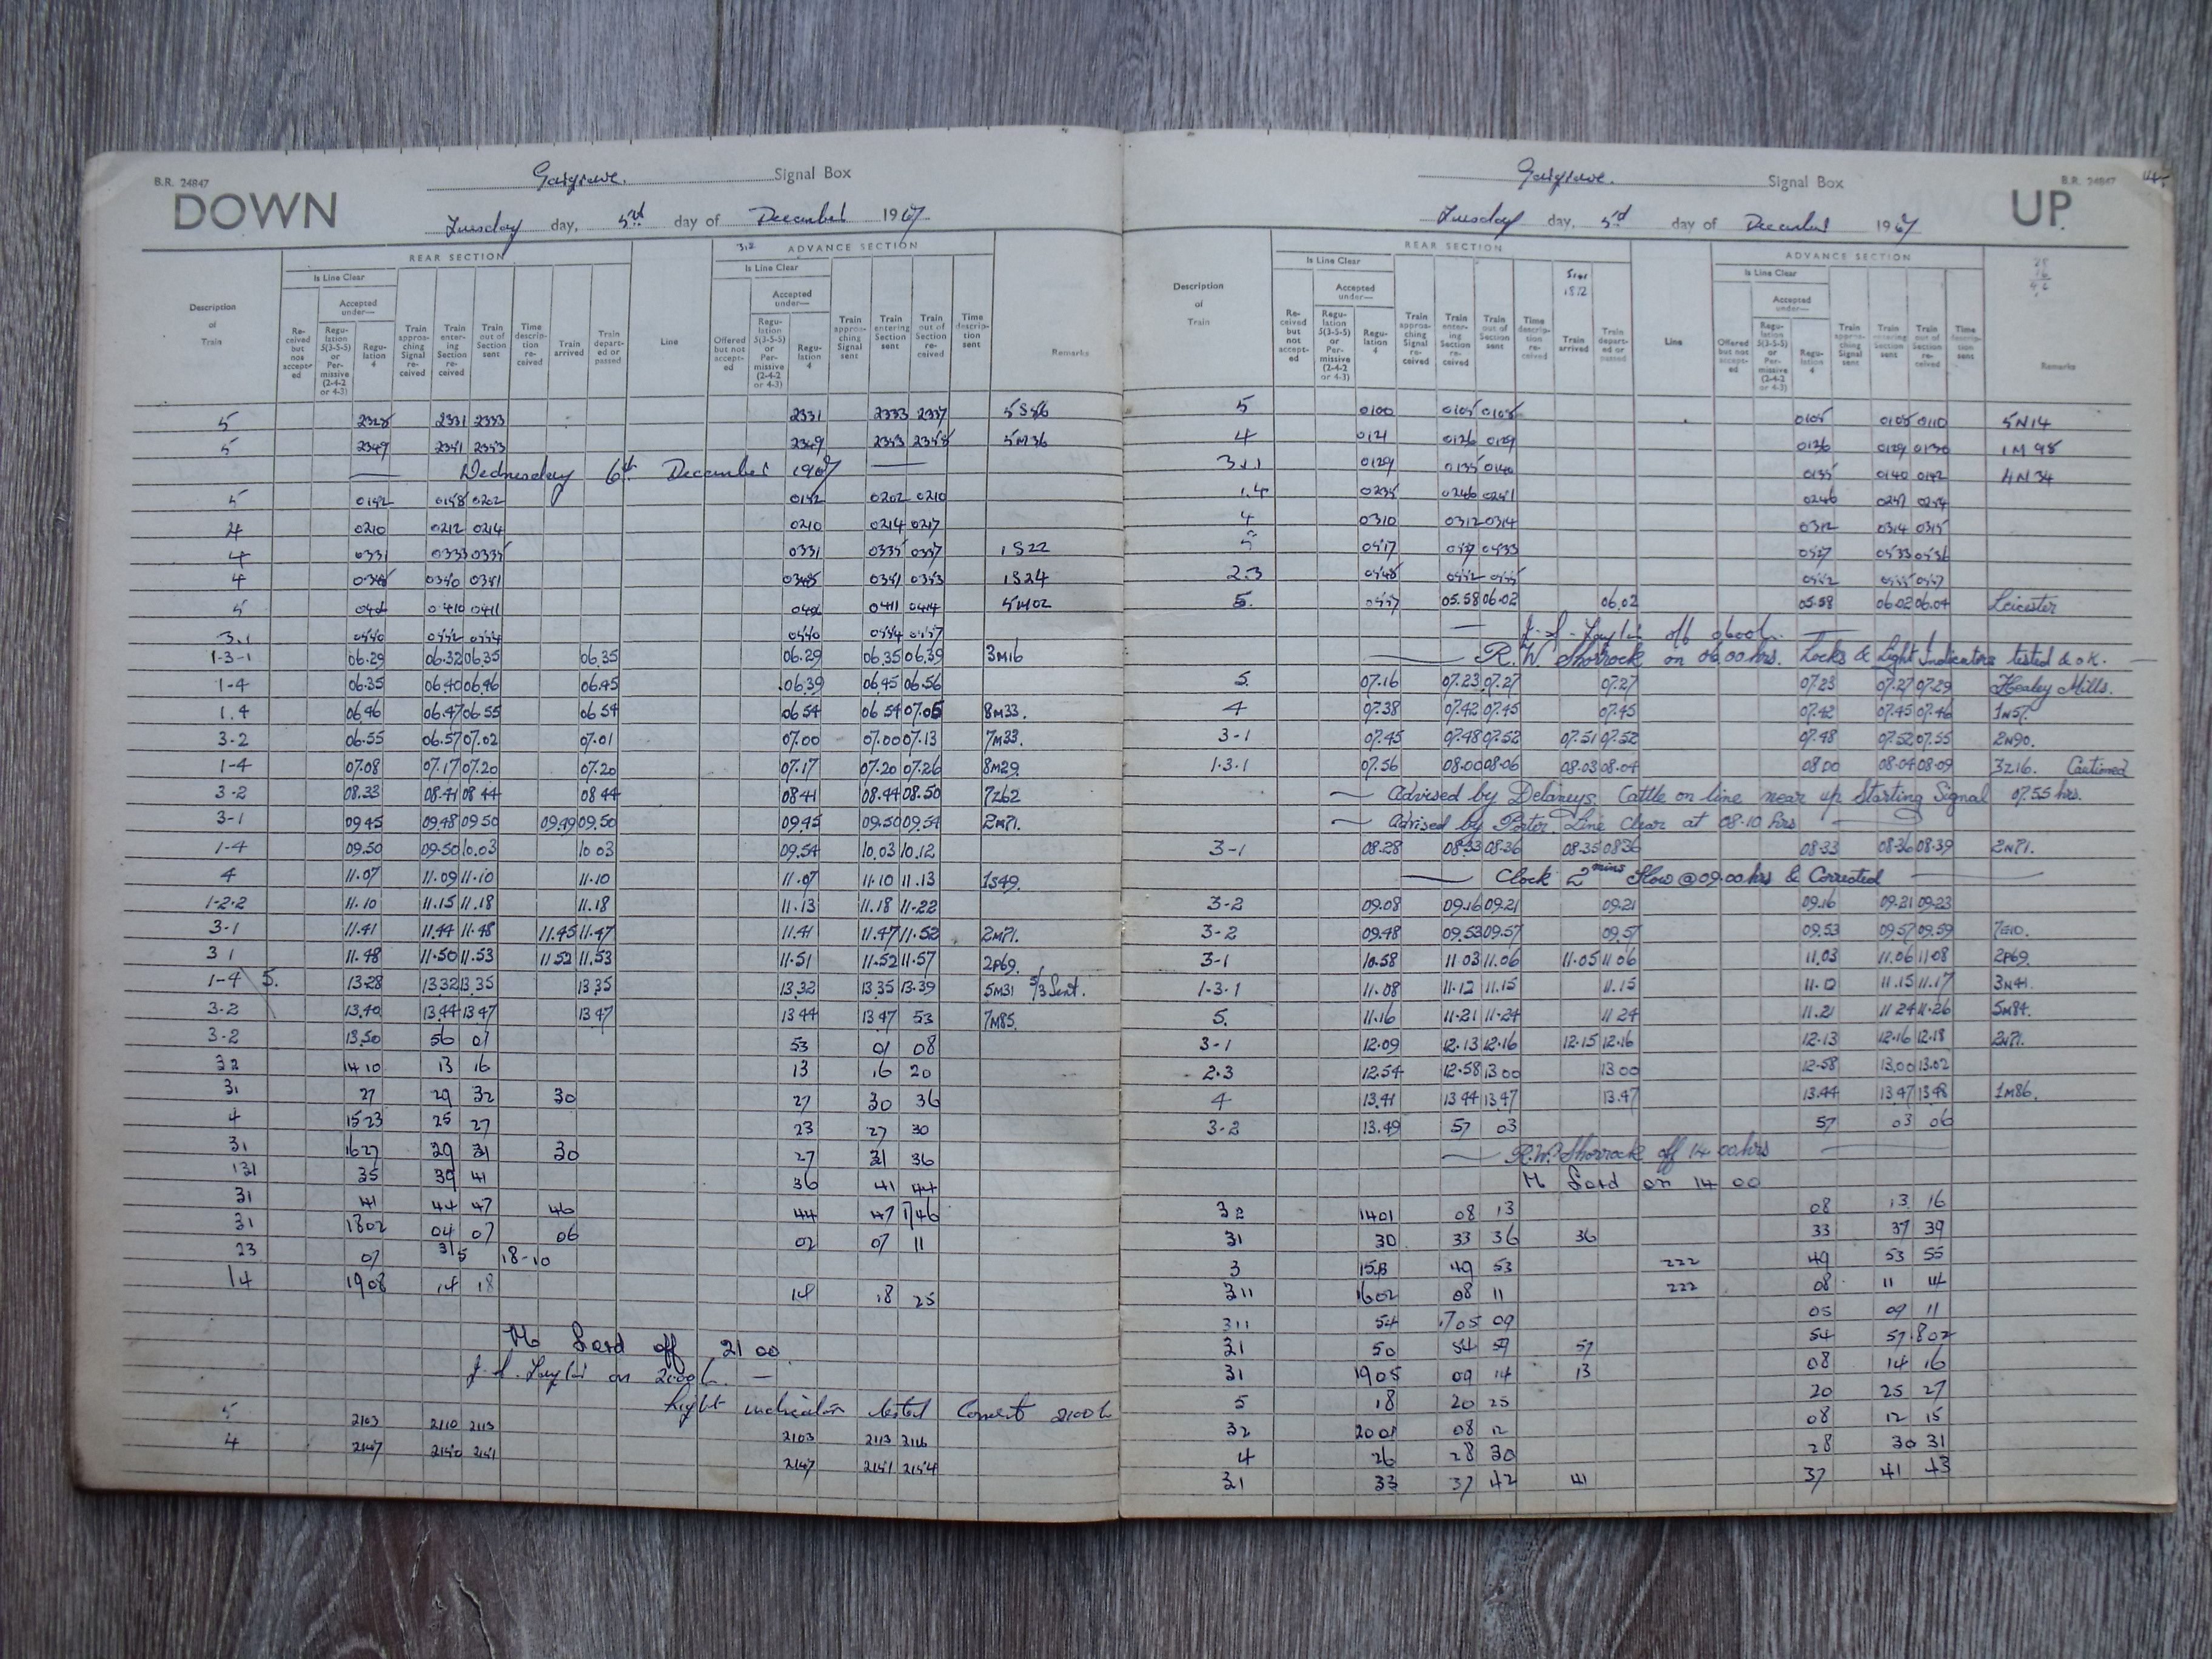 B.R. 24847
DOWN
Gargrave. Signal Box
Tuesday day, 5th day of December 1967
REAR SECTION
3.2 ADVANCE SECTION
Is Line Clear
Is Line Clear
Description of Train
Received but not accepted
Accepted under—
Regulation 5(3-5-5) or Permissive (2-4-2 or 4-3)
Regulation 4
Train approaching Signal received
Train entering Section received
Train out of Section sent
Time description received
Train arrived
Train departed or passed
Line
Offered but not accepted
Accepted under—
Regulation 5(3-5-5) or Permissive (2-4-2 or 4-3)
Regulation 4
Train approaching Signal sent
Train entering Section sent
Train out of Section received
Time description sent
Remarks
5 2328 2331 2333 2331 2333 2337 5S86
5 2349 2351 2353 2349 2353 2358 5M36
Wednesday 6th December 1967
5 0152 0158 0202 0152 0202 0210
4 0210 0212 0214 0210 0214 0217
4 0331 0333 0335 0331 0335 0337 1S22
4 0348 0350 0351 0348 0351 0353 1S24
5 0410 0411 0411 0414 5M02
3.1 0550 0552 0554 0550 0554 0557
1-3-1 06.29 06.32 06.35 06.35 06.29 06.35 06.39 3M16
1-4 06.35 06.40 06.46 06.45 06.39 06.45 06.56
1.4 06.46 06.47 06.55 06 54 06 54 06 54 07.05 8M33.
3-2 06.55 06.57 07.02 07.01 07.00 07.00 07.13 7M33.
1-4 07.08 07.17 07.20 07.20 07.17 07.20 07.26 8M29.
3-2 08.33 08.41 08 44 08 44 08 41 08.44 08.50 7Z62
3-1 09 45 09.48 09 50 09.49 09.50 09.45 09.50 09.54 2M71.
1-4 09.50 09.50 10.03 10 03 09.54 10.03 10.12
4 11.07 11.09 11.10 11.10 11.07 11.10 11.13 1S49.
1-2-2 11.10 11.15 11.18 11.18 11.13 11.18 11-22
3-1 11.41 11.44 11.48 11.45 11.47 11.41 11.47 11.52 2M71.
3 1 11.48 11.50 11.53 11 52 11.53 11.51 11.52 11.57 2P69.
1-4 5. 13.28 13.32 13.35 13 35 13.32 13 35 13.39 5M31 5/3 Sent.
3-2 13.40 13.44 13 47 13 47 13 44 13 47 53 7M85.
3-2 13.50 56 01 53 01 08
32 14 10 13 16 13 16 20
31 27 29 32 30 27 30 36
4 1523 25 27 23 27 30
31 1627 29 31 30 27 31 36
131 35 39 41 36 41 44
31 41 44 47 46 44 47 1746
31 1802 04 07 06 02 07 11
23 07 18-10
14 1908 14 18 14 18 25
M Lord off 21 00
J. S. Taylor on 2100 h.
Light indicator tested Correct 2100 h
5 2103 2110 2113 2103 2113 2116
4 2147 2150 2151 2147 2151 2154
Gargrave. Signal Box
B.R. 24847
UP
Tuesday day, 5th day of December 1967
REAR SECTION
ADVANCE SECTION
Is Line Clear
Is Line Clear
Description of Train
Received but not accepted
Accepted under—
Regulation 5(3-5-5) or Permissive (2-4-2 or 4-3)
Regulation 4
Train approaching Signal received
Train entering Section received
Train out of Section sent
Time description received
Train arrived
Train departed or passed
Line
Offered but not accepted
Accepted under—
Regulation 5(3-5-5) or Permissive (2-4-2 or 4-3)
Regulation 4
Train approaching Signal sent
Train entering Section sent
Train out of Section received
Time description sent
Remarks
5 0100 0105 0108 0105 0108 0110 5N14
4 0121 0126 0129 0126 0129 0130 1M98
3.1.1 0129 0135 0140 0135 0140 0142 4N34
1.4 0235 0246 0251 0246 0251 0254
4 0310 0312 0314 0312 0314 0315
5 0517 0527 0533 0527 0533 0536
2.3 0548 0552 0555 0552 0555 0557
5. 0557 05.58 06.02 06.02 05.58 06.02 06.04 Leicester
J. S. Taylor off 0600h.
R.W Shorrock on 06.00 hrs. Locks & Light Indicators tested & O.K.
5. 07.16 07.23 07.27 07.27 07.23 07.27 07.29 Healey Mills.
4 07.38 07.42 07.45 07.45 07.42 07.45 07.46 1N57.
3-1 07.45 07.48 07.52 07.51 07.52 07.48 07.52 07.55 2N90.
1.3.1 07.56 08.00 08.06 08.03 08.04 08 00 08.04 08.09 3Z16. Cautioned
Advised by Delaneys. Cattle on line near up Starting Signal 07.55 hrs.
Advised by Porter. Line Clear at 08.10 hrs
3-1 08.28 08.33 08.36 08.35 08 36 08.33 08.36 08.39 2N71.
Clock 2 mins Slow @ 09.00 hrs & Corrected
3-2 09.08 09.16 09.21 09.21 09.16 09.21 09.23
3-2 09.48 09.53 09.57 09.57 09.53 09.57 09.59 7E10.
3-1 10.58 11 03 11.06 11.05 11 06 11.03 11.06 11.08 2P69.
1-3-1 11.08 11.12 11.15 11.15 11.12 11.15 11.17 3N41.
5. 11.16 11.21 11.24 11 24 11.21 11 24 11.26 5M84.
3-1 12.09 12.13 12.16 12.15 12.16 12.13 12.16 12.18 2N71.
2.3 12.54 12.58 13 00 13 00 12.58 13.00 13.02
4 13.41 13 44 13 47 13.47 13.44 13 47 13 48 1M86.
3-2 13.49 57 03 57 03 06
R.W. Shorrock off 14 00 hrs
M Lord on 14 00
32 1401 08 13 08 13 16
31 30 33 36 36 33 37 39
3 49 53 222 49 53 55
311 1602 08 11 222 08 11 14
311 54 1705 09 05 09 11
31 50 54 59 57 54 57 1802
31 1905 09 14 13 08 14 16
5 18 20 25 20 25 27
32 2001 08 12 08 12 15
4 26 28 30 28 30 31
31 33 37 42 41 37 41 43